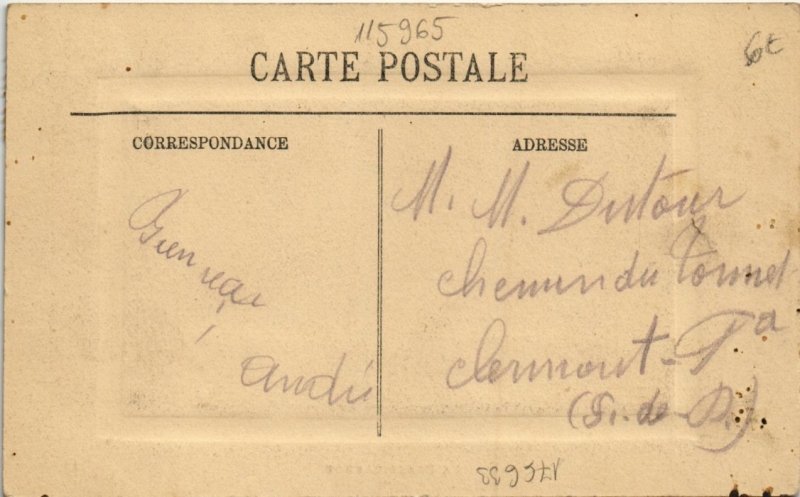 115965
CARTE POSTALE
CORRESPONDANCE
ADRESSE
Bien reçu
André
M. M. Dutour
chemin du Tonnet
Clermont-Fd
(P.-de-D.)